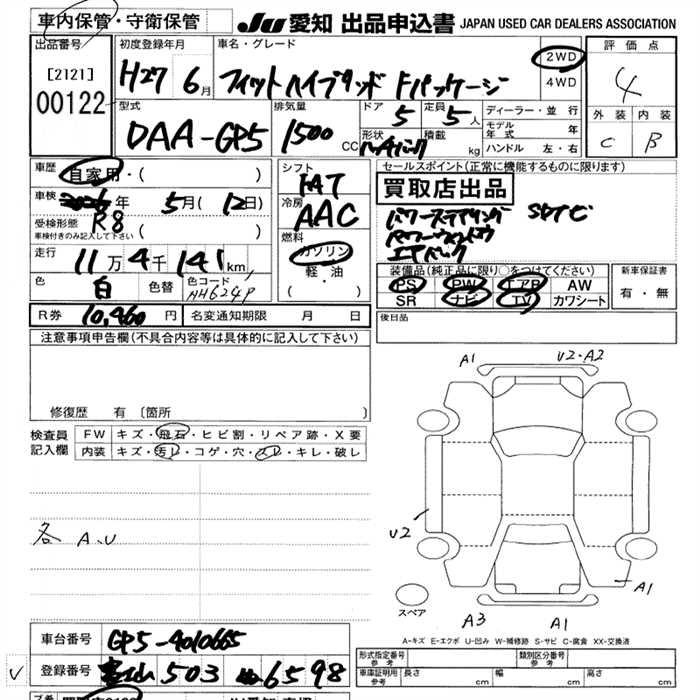 車内保管・守衛保管
JU 愛知 出品申込書 JAPAN USED CAR DEALERS ASSOCIATION
出品番号
[2121]
00122
初度登録年月
H27 6月
車名・グレード
フィットハイブリッド Fパッケージ
2WD
4WD
評価点
4
外装 内装
C B
型式
DAA-GP5
排気量
1500 CC
ドア
5
定員
5人
形状
ハッチバック
積載
kg
ディーラー・並行
モデル年式 年
ハンドル 左・右
車歴
自家用・( )
車検
年 5月(12日)
R8
受検形態
車検付きのみ記入して下さい ( )
走行
11万4千141km
色
白
色替
色コード
NH624P
シフト
FAT
冷房
AAC
燃料
ガソリン
軽・油
・( )
セールスポイント(正常に機能するものに限ります)
買取店出品
パワーステアリング SDナビ
パワーウィンドウ
エアバッグ
装備品(純正品に限り○をつけてください)
PS PW エアB AW
SR ナビ TV カワシート
新車保証書
有・無
後日品
R券 10,460円 名変通知期限 月 日
注意事項申告欄(不具合内容等は具体的に記入して下さい)
修復歴 有 〔箇所 〕
検査員記入欄
FW キズ・飛石・ヒビ割・リペア跡・X要
内装 キズ・汚レ・コゲ・穴・スレ・キレ・破レ
各 A、U
A1
U2・A2
U2
A1
スペア
A3
A1
A-キズ E-エクボ U-凹み W-補修跡 S-サビ C-腐食 XX-交換済
車台番号
GP5-4010665
登録番号
富山 503 ぬ 6598
形式指定番号 参考
類別区分番号 参考
車庫証明用 参考 長さ cm 幅 cm 高さ cm